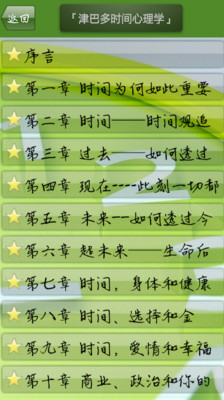 返回
『津巴多时间心理学』
序言
第一章 时间为何如此重要
第二章 时间——时间观追
第三章 过去——如何透过
第四章 现在----此刻一切都
第五章 未来--如何透过今
第六章 超未来——生命后
第七章 时间，身体和健康
第八章 时间、选择和金
第九章 时间，爱情和幸福
第十章 商业、政治和你的